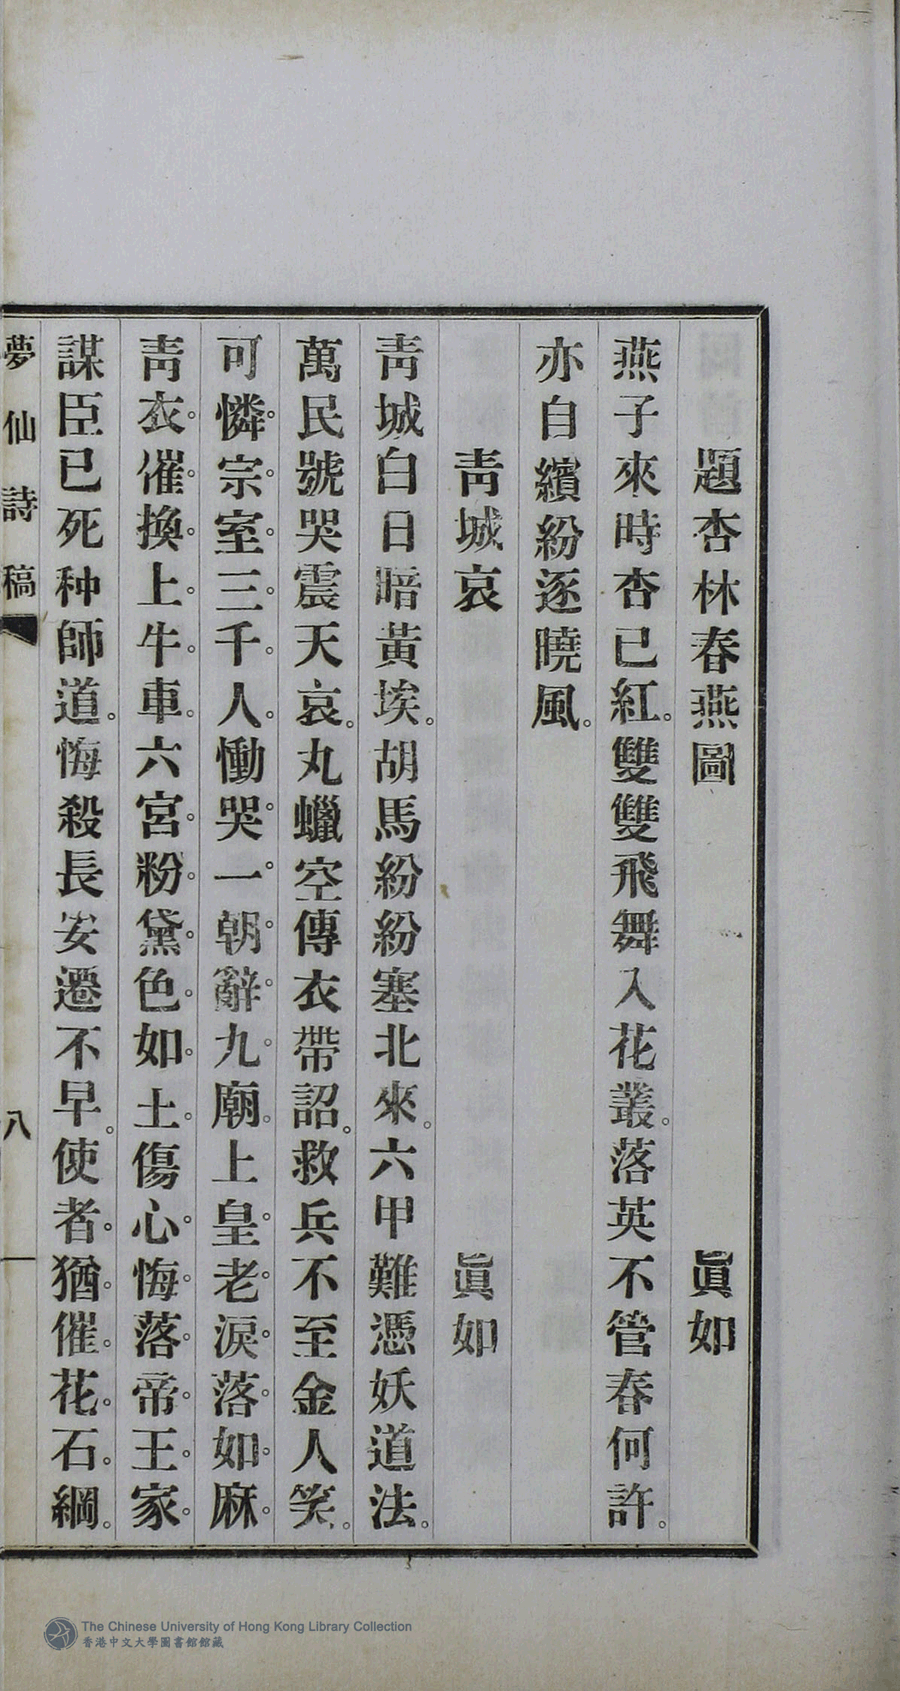 題杏林春燕圖 眞如
燕子來時杏已紅。雙雙飛舞入花叢。落英不管春何許。
亦自繽紛逐曉風。
靑城哀 眞如
靑城白日暗黃埃。胡馬紛紛塞北來。六甲難憑妖道法。
萬民號哭震天哀。丸蠟空傳衣帶詔。救兵不至金人笑。
可憐宗室三千人。慟哭一朝辭九廟。上皇老淚落如麻。
靑衣催換上牛車。六宮粉黛色如土。傷心悔落帝王家。
謀臣已死种師道。悔殺長安遷不早。使者猶催花石綱。
夢仙詩稿 八
The Chinese University of Hong Kong Library Collection
香港中文大學圖書館館藏